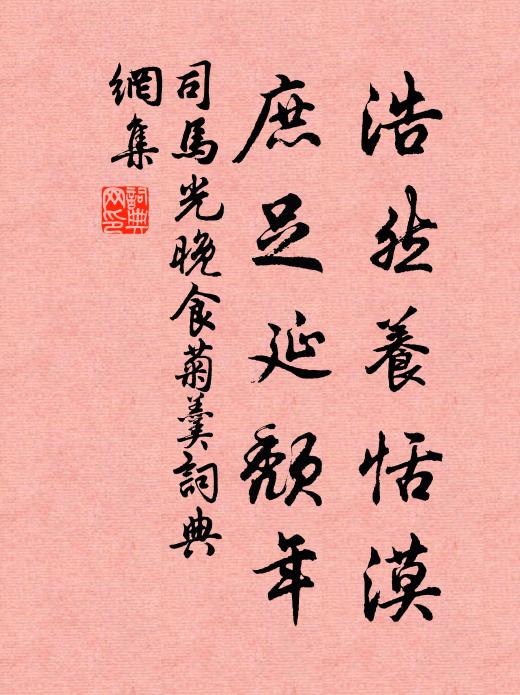 浩然養恬漠
庶足延頹年
司馬光晚食菊羹詞典
網集
詞典
网印